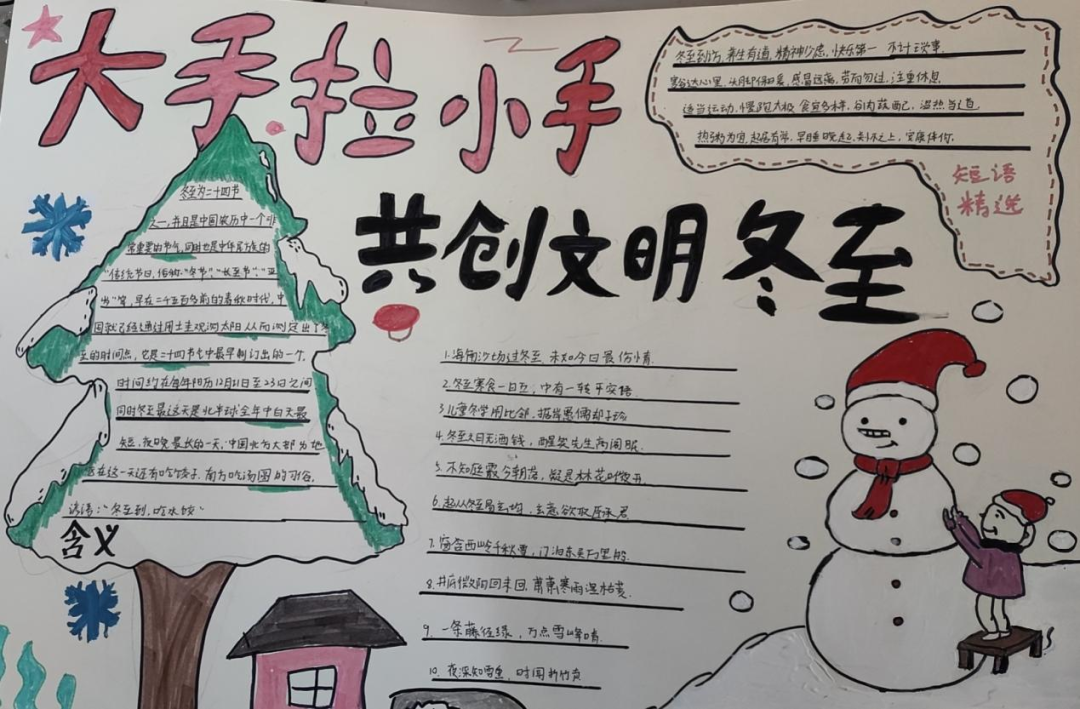 大手拉小手
共创文明冬至
冬至到访，养生有道，精神少虑，快乐第一
感冒远离，劳而勿过，注重休息
适当运动，慢跑太极，食宜多样，谷肉蔬
热粥为宜，起居有常，早睡晚起
短语
精选
冬至为二十四节
之一，并且是中国农历中一个非
常重要的节气，同时也是中华民族的
传统节日，俗称"冬节"、"长至节"、"亚
岁"等，早在二千五百多年前的春秋时代，中
国就已经通过用土圭观测太阳从而测定出了冬
至的时间点，它是二十四节气中最早制订出的一个。
时间约在每年阳历12月21日至23日之间
同时冬至最这天是北半球全年中白天最
短，夜晚最长的一天，中国北方大部分地
区在这一天还有吃饺子，南方吃汤圆的习俗。
谚语："冬至到，吃水饺"
含义
1.海南沙场过冬至 未知今日是何情.
2.冬至寒食一百五，中有一转平交语.
3.儿童冬学闹比邻，据岸愚儒却子珍
4.冬至日无酒钱，醒然先生尚闹眠.
5.不知庭霰今朝落，疑是林花昨夜开.
6.
7.窗含西岭千秋雪，门泊东吴万里船.
8.萧萧寒雨湿枯荄.
9.一条藤径绿，万点雪峰晴.
10.夜深知雪重，时闻折竹声